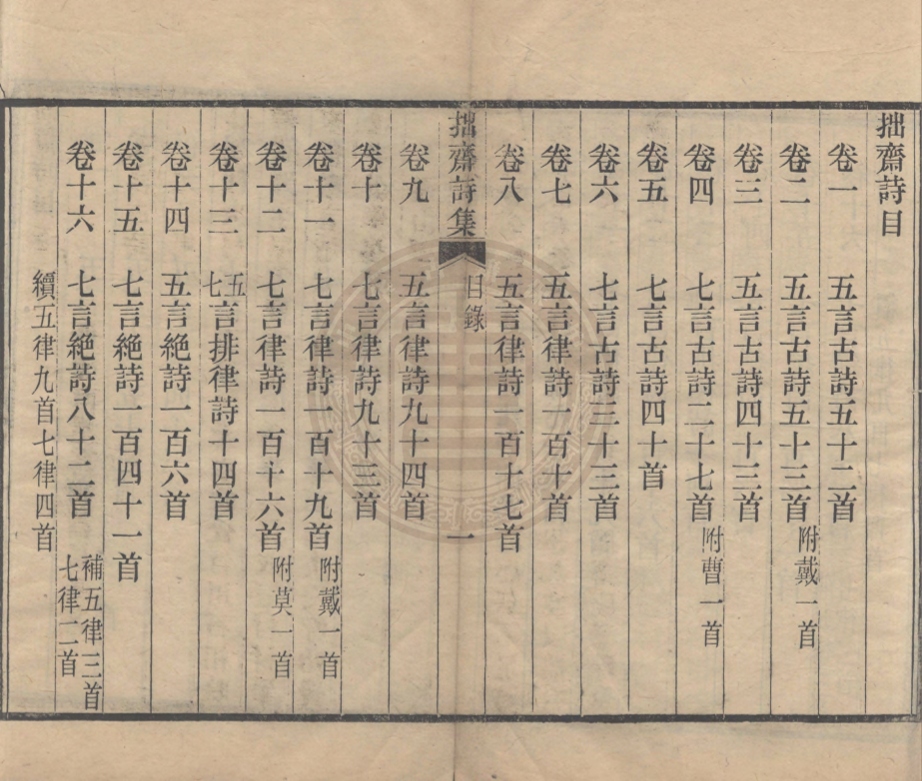 拙齋詩目
卷一 五言古詩五十二首
卷二 五言古詩五十三首 附戴一首
卷三 五言古詩四十三首
卷四 七言古詩二十七首 附曹一首
卷五 七言古詩四十首
卷六 七言古詩三十三首
卷七 五言律詩一百十首
卷八 五言律詩一百十七首
拙齋詩集 目錄 一
卷九 五言律詩九十四首
卷十 七言律詩九十三首
卷十一 七言律詩一百十九首 附戴一首
卷十二 七言律詩一百十六首 附莫一首
卷十三 五七言排律詩十四首
卷十四 五言絶詩一百六首
卷十五 七言絶詩一百四十一首
卷十六 七言絶詩八十二首 補五律三首七律二首
續五律九首七律四首